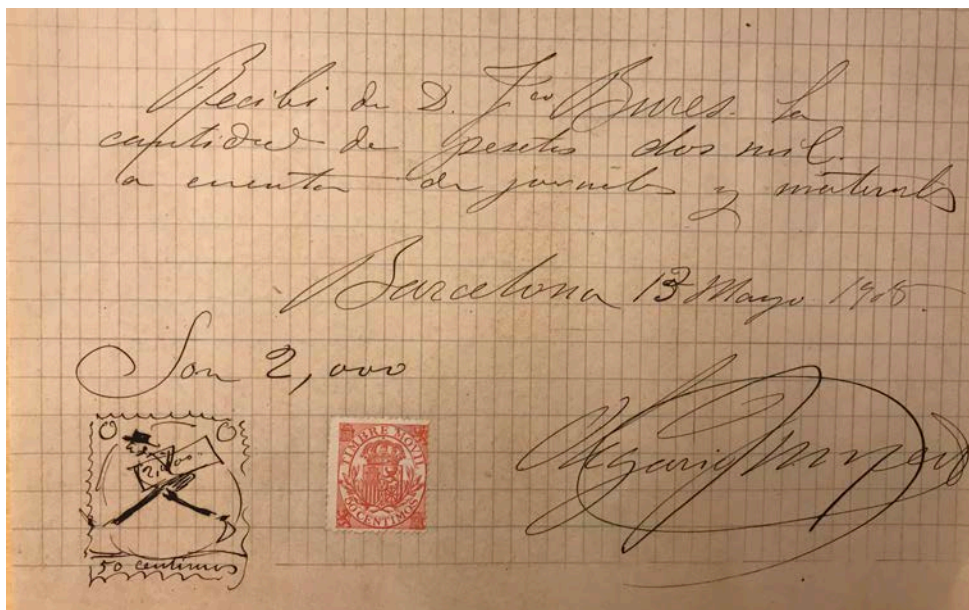 Recibi de D. Fco Bures. la
cantidad de pesetas dos mil.
a cuenta de jornales y materiales
Barcelona 13 Mayo 1905
Son 2,000
TIMBRE MOVIL
50 CENTIMOS
50 centimos